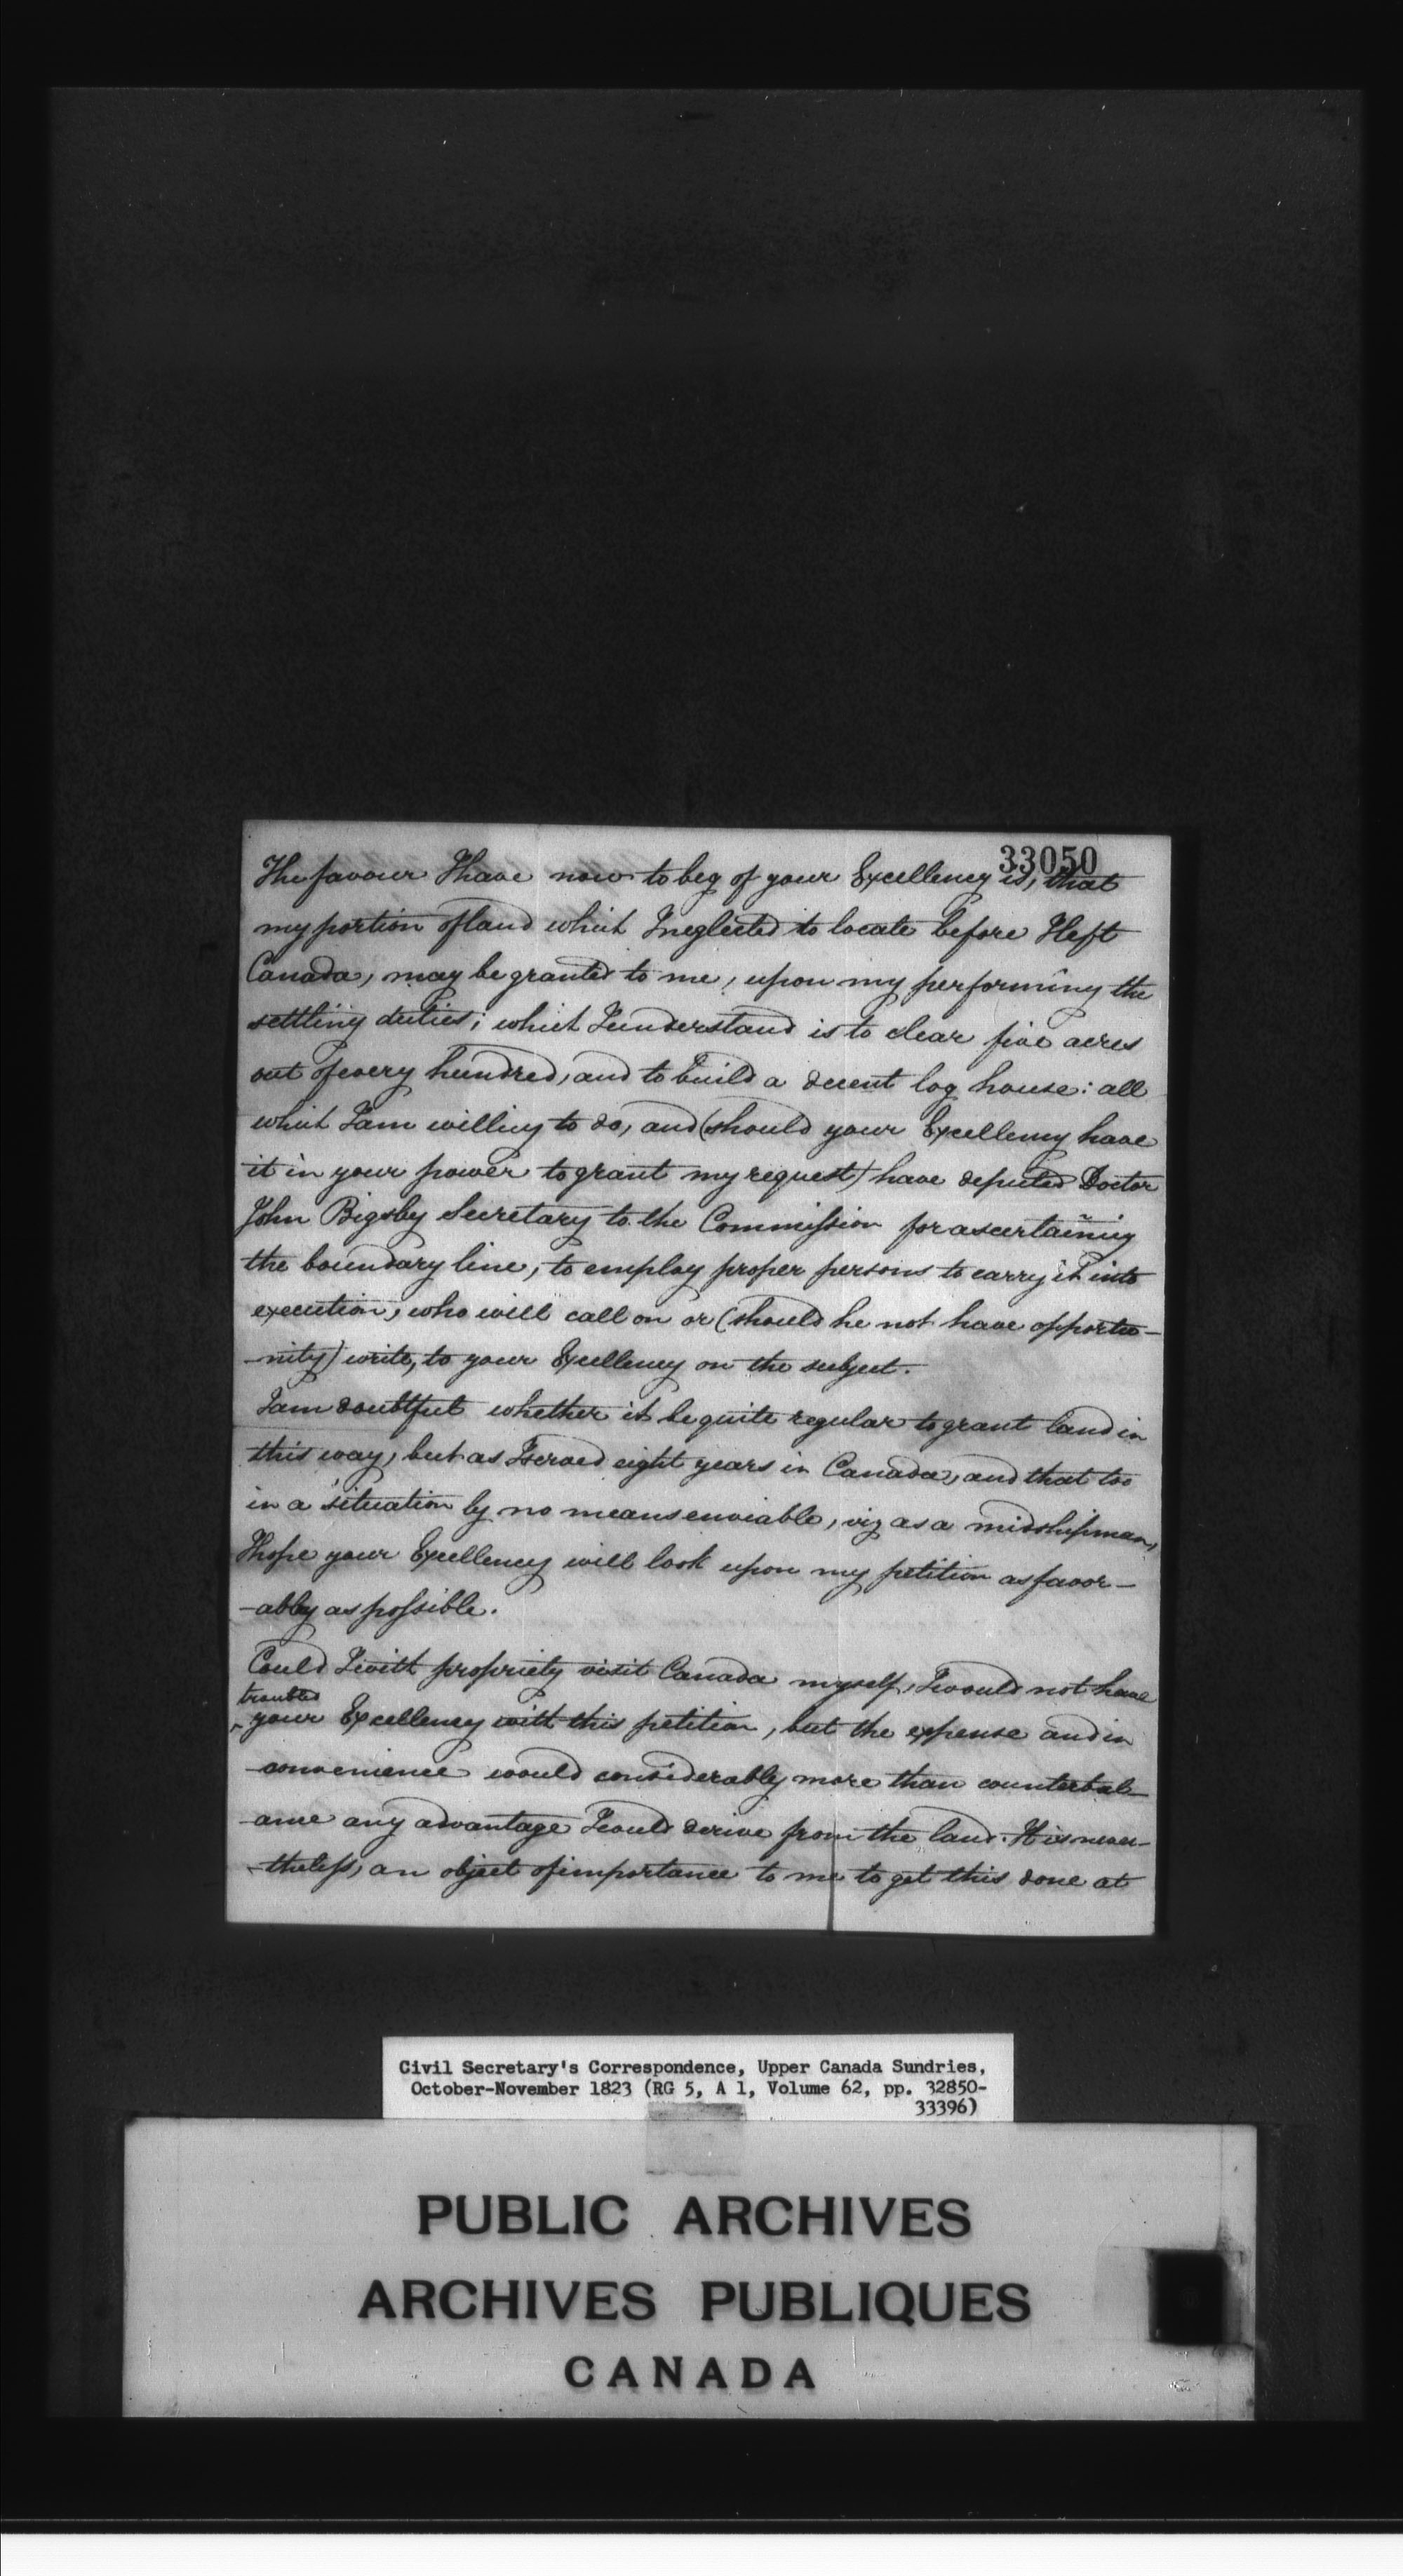 33050
The favour I have now to beg of your Excellency is, that
my portion of land which I neglected to locate before I left
Canada, may be granted to me, upon my performing the
settling duties; which I understand is to clear five acres
out of every hundred, and to build a decent log house: all
which I am willing to do, and (should your Excellency have
it in your power to grant my request) have deputed Doctor
John Bigsby Secretary to the Commission for ascertaining
the boundary line, to employ proper persons to carry it into
execution, who will call on or (should he not have opportu-
-nity) write, to your Excellency on the subject.
I am doubtful whether it be quite regular to grant land in
this way, but as I served eight years in Canada, and that too
in a situation by no means enviable, viz as a midshipman,
I hope your Excellency will look upon my petition as favor-
-ably as possible.
Could I with propriety visit Canada myself, I would not have
troubled
your Excellency with this petition, but the expense and in
-convenience would considerably more than counterbal-
-ance any advantage I could derive from the land. It is never-
-theless, an object of importance to me to get this done at
Civil Secretary's Correspondence, Upper Canada Sundries,
October-November 1823 (RG 5, A 1, Volume 62, pp. 32850-
33396)
PUBLIC ARCHIVES
ARCHIVES PUBLIQUES
CANADA